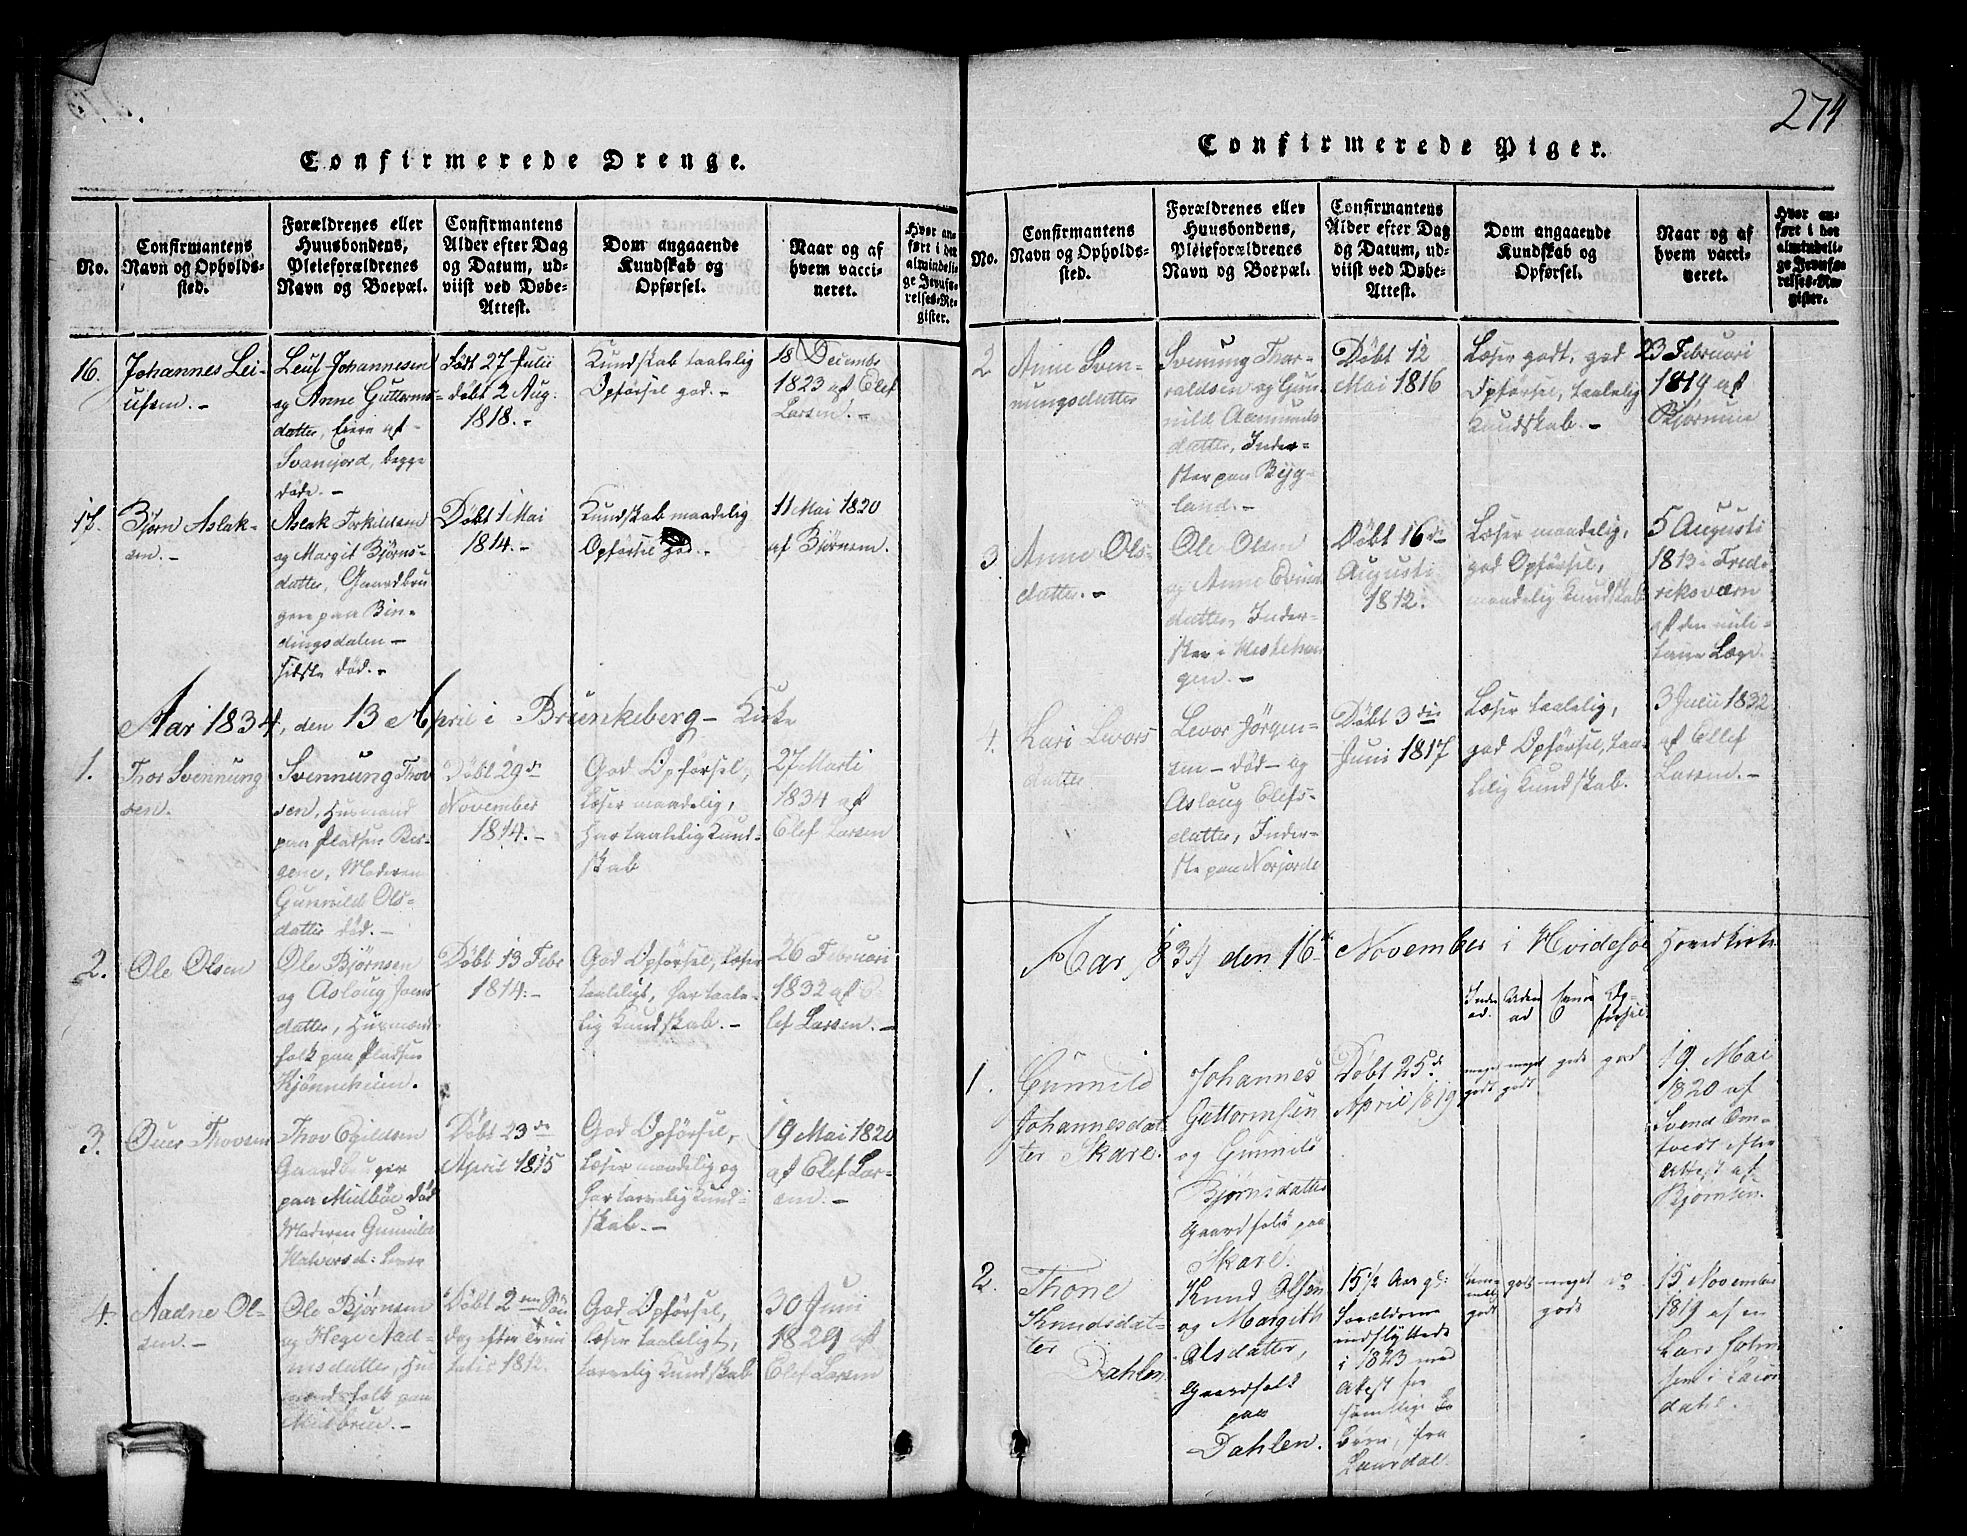 274
Confirmerede Drenge.
No.
Confirmantens
Navn og Opholds-
sted.
Forældrenes eller
Huusbondens,
Pleieforældrenes
Navn og Boepæl.
Confirmantens
Alder efter Dag
og Datum, ud-
viist ved Døbe-
Attest.
Dom angaaende
Kundskab og
Opførsel.
Naar og af
hvem vacci-
neret.
Hvor an-
ført i det
almindeli-
ge Jevnfø-
relses-Re-
gister.
16.
Johannes Lei-
ufsen. -
Leuf Johannesen
og Anne Guttorms-
datter, Eiere af
Svanejord, begge
døde. -
Født 27 Julii
døbt 2 Aug.
1818. -
Kundskab taalelig
Opførsel god. -
18 Decembr
1823 af Olef
Larsen. -
17.
Bjørn Aslak-
sen. -
Aslak Torkildsen
og Margit Bjørns-
datter, Gaardbru
gere paa Bin-
dingsdalen -
sidste død. -
Døbt 1 Mai
1814. -
Kundskab maadelig
Opførsel god. -
11 Mai 1820
af Bjørnsen.
Aar 1834, den 13 April i Brunkeberg - Kirke
1.
Thor Svennung
sen.
Svennung Thov
sen, Husmand
paa Pladsen Ber-
gene, Moderen
Gunvild Ols-
datter død. -
Døbt 29de
November
1814. -
God Opførsel,
læser maadelig,
har taalelig Kund-
skab
27 Marti
1834 af
Olef Larsen
2.
Ole Olsen
Ole Bjørnsen
og Aslaug Joens
datter, Husmænd
folk paa Pladsen
Kjønneheien.
Døbt 13 Febr
1814. -
God Opførsel, læser
taaleligt, har taale-
lig Kundskab. -
26 Februari
1832 af O
lef Larsen. -
3.
Ouer Thovsen
Thov Egildsen
Gaardbruger
paa Midbøe død
Moderen Gunnild
Halvorsd: lever
Døbt 23de
April 1815
God Opførsel,
læser maadelig og
har tarvelig Kund-
skab. -
19 Mai 1820
af Olef Lar-
sen. -
4.
Aadne Ol-
sen. -
Ole Bjørnsen
og Hege Aad-
nesdatter, Hus
mandsfolk paa
Midbøe. -
Døbt 2den Søn
dag efter Trini
tatis 1812.
God Opførsel,
læser taaleligt,
tarvelig Kundskab
30 Juni
1829 af
Olef Larsen
Confirmerede Piger.
No.
Confirmantens
Navn og Opholds-
sted.
Forældrenes eller
Huusbondens,
Pleieforældrenes
Navn og Boepæl.
Confirmantens
Alder efter Dag
og Datum, ud-
viist ved Døbe-
Attest.
Dom angaaende
Kundskab og
Opførsel.
Naar og af
hvem vacci-
neret.
Hvor an-
ført i det
almindeli-
ge Jevnfø-
relses-Re-
gister.
2
Anne Sven-
nungsdatter
Svenung Thar-
raldsen og Gun
nild Aamunds
datter, Inder-
ster paa Byg-
land. -
Døbt 12
Mai 1816
Læser godt, god
Opførsel, taalelig
Kundskab. -
23 Februari
1819 af
Bjørnsen
3
Anne Ols-
datter. -
Ole Olsen
og Anne Evind
datter, Inder-
ster i Hestehau
gen. -
Døbt 16de
Augusti
1812.
Læser maadelig,
god Opførsel,
maadelig Kundskab
5 Augusti
1813 i Fred-
riksværn
af den mili-
taire Læge.
4.
Kari Levors
datter
Levor Jörgen-
sen - død - og
Aslaug Olefs-
datter, Inder-
ste paa Norjorde
Døbt 3die
Juni 1817
Læser taalelig,
god Opførsel, taa-
lelig Kundskab.
3 Julii 1832
af Ollef
Larsen. -
Aar 1834 den 16de November i Hvidesøe Hovedkirke
Inden
ad.
Uden
ad
Evne
Op-
førsel
1.
Gunnild
Johannesdat-
ter Skare.
Johannes
Guttormsen
og Gunnild
Bjørnsdatter
Gaardfolk paa
Skare.
Døbt 25de
April 1819
meget
godt
meget
godt
gode
god
19. Mai
1820 af
Svend Om-
tvedt efter
Attest af
Bjørnsen.
2.
Thone
Knudsdat-
ter
Dahlen
Knud Olsen
og Margith
Olsdatter,
Gaardfolk
paa
Dahlen.
15 1/2 Aar gl:
Forældrene
indflyttede
i 1823 med
Attest for
samtlige
Børn, fra
Laurdal.
godt
meget
gode
do
15 November
1819 af en
Lars Holm
sen i Laur
dahl.